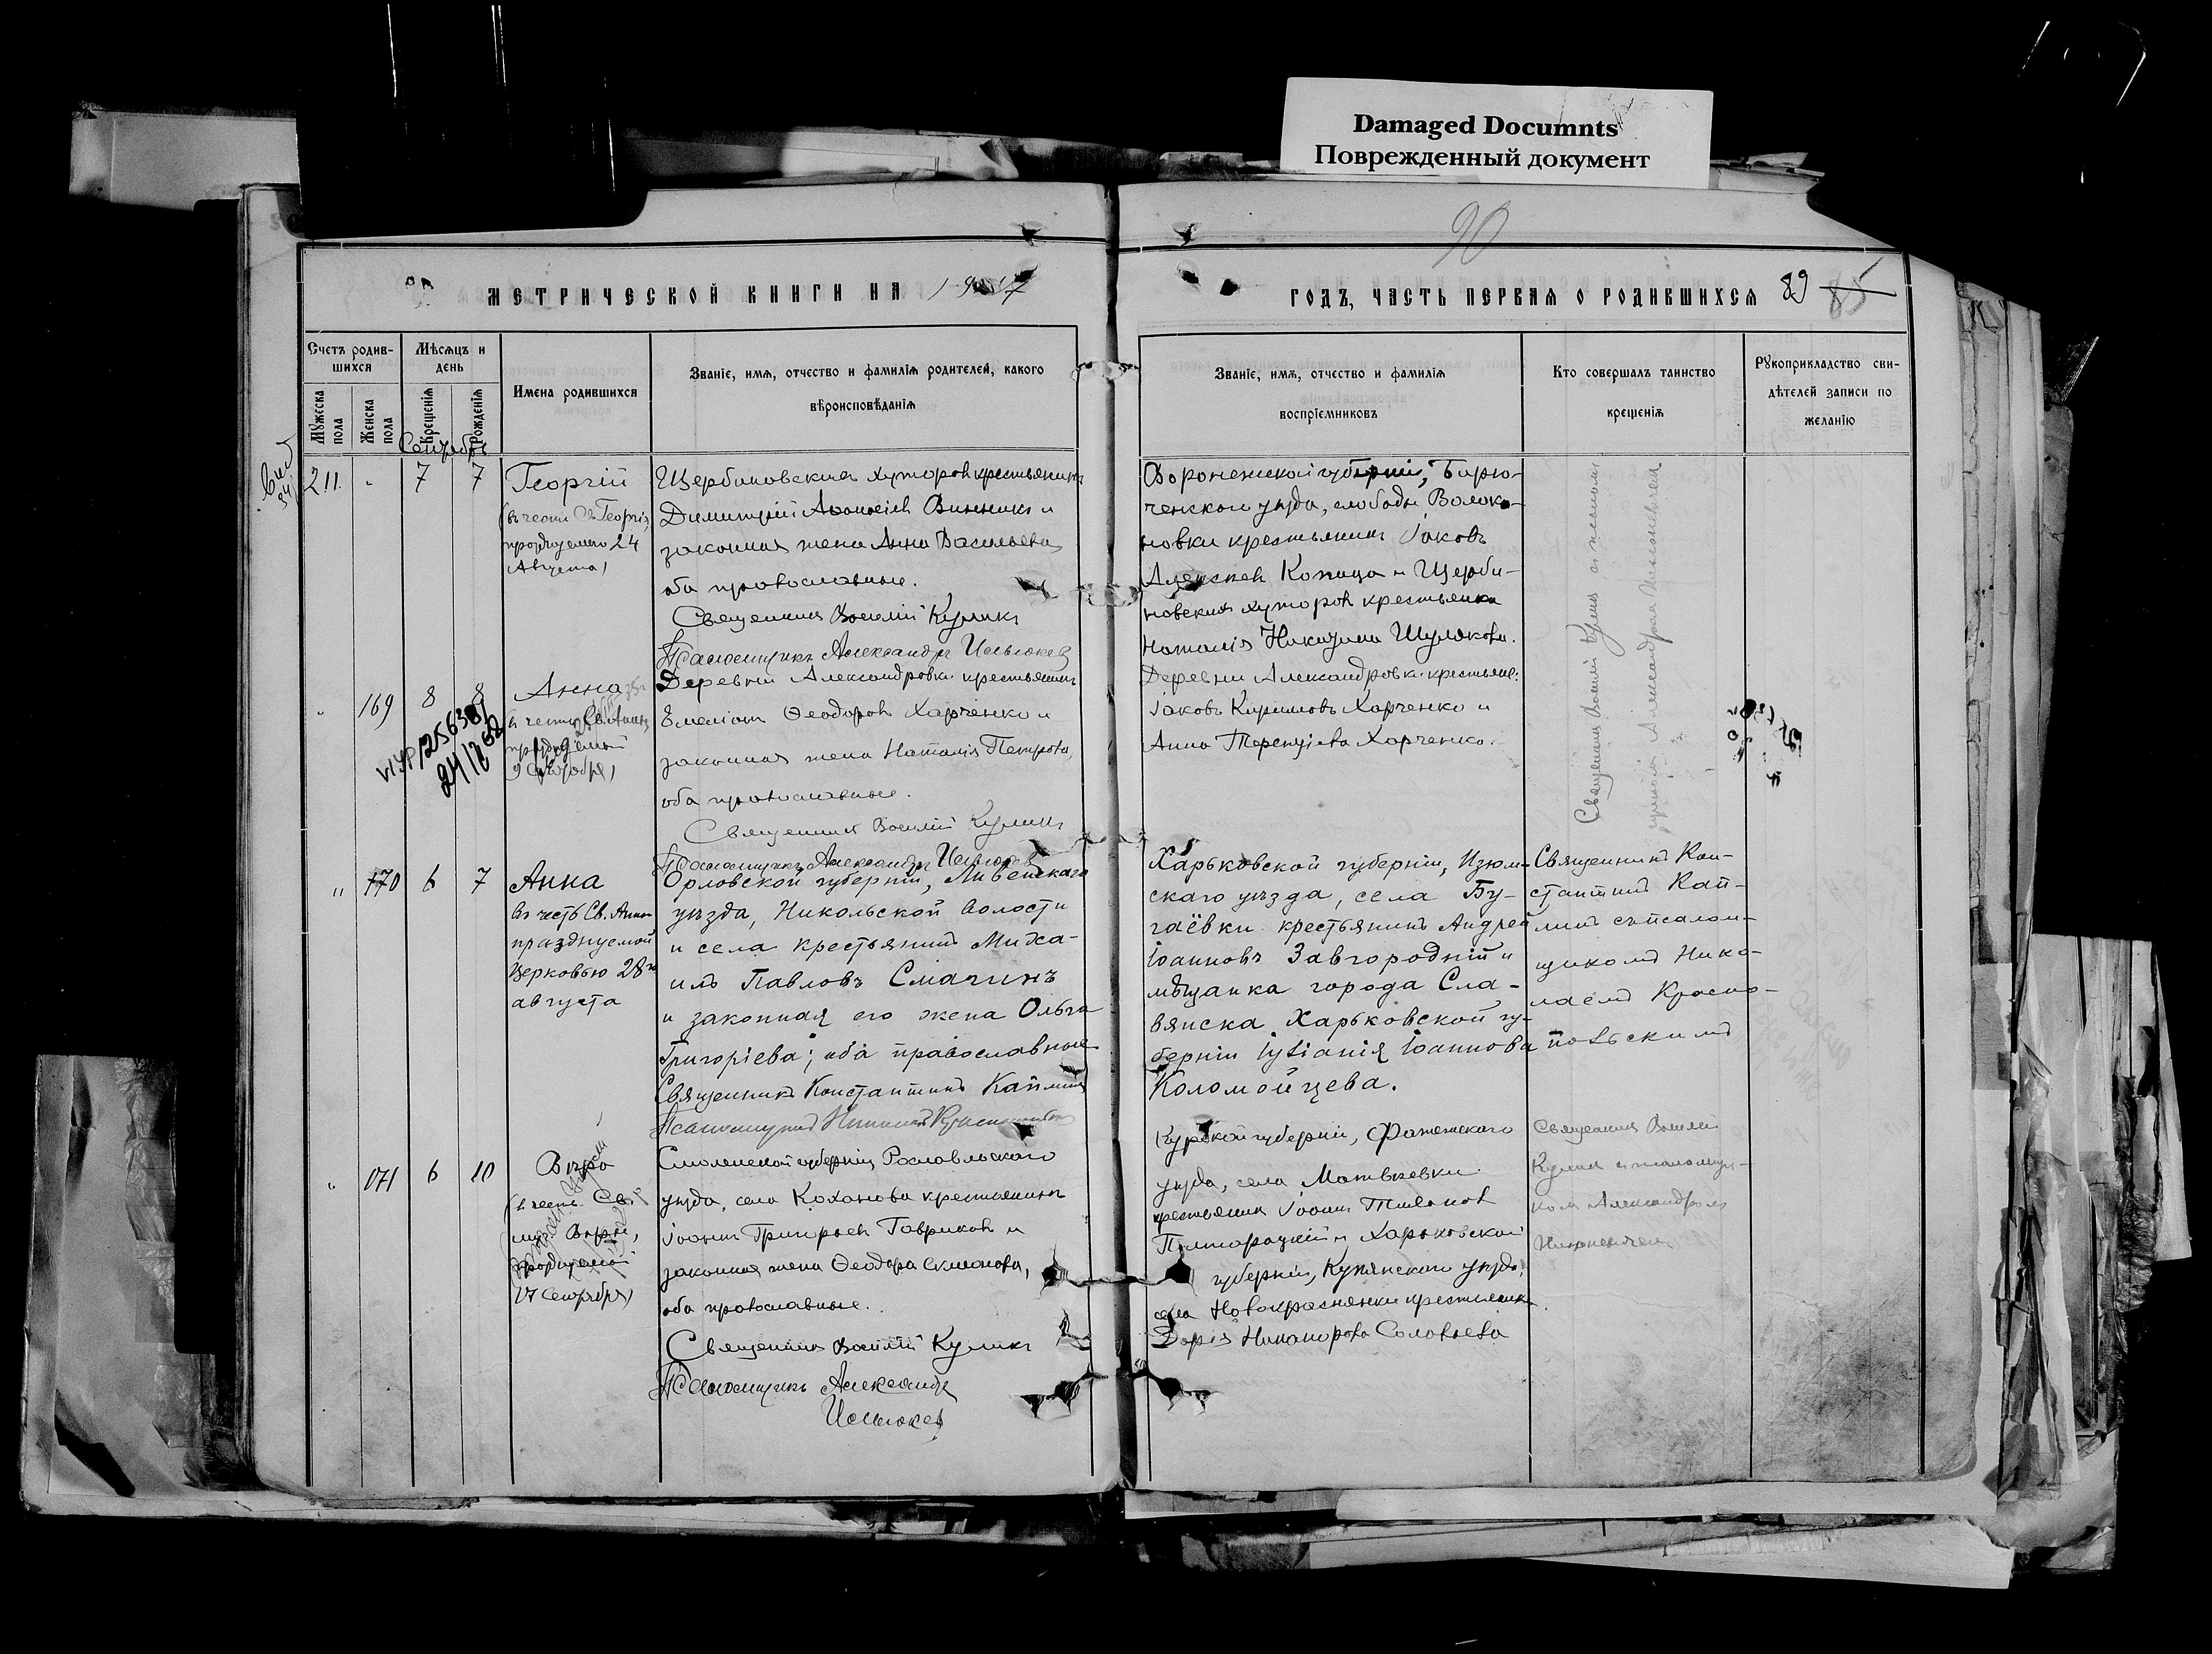 Damaged Documnts
Поврежденный документ
90
МЕТРИЧЕСКОЙ КНИГИ НА
ГОДЪ, ЧАСТЬ ПЕРВАЯ О РОДИВШИХСЯ 89 85
Счетъ родив-
шихся
Мужеска пола
Женска пола
Мѣсяцъ и
день
Крещенія
Рожденія
Имена родившихся
Званіе, имя, отчество и фамилія родителей, какого
вѣроисповѣданія
Званіе, имя, отчество и фамилія
воспріемниковъ
Кто совершалъ таинство
крещенія
Рукоприкладство сви-
дѣтелей записи по
желанію
Сентябрь
211. " 7 7
Георгій
(въ честь Св. Георгія,
празднуемаго 24
Августа)
Щербиновскихъ хуторовъ крестьянинъ
Димитрій Аѳонасіевъ Винникъ и
законная жена Анна Васильева,
оба православные.
Священникъ Василій Куликъ
Псаломщикъ Александръ
Воронежской губерніи, Бирю-
ченскаго уѣзда, слободы Волоко-
новки крестьянинъ Іаковъ
Алексѣевъ Копица и Щерби-
новскихъ хуторовъ крестьянка
Наталія Шулякова.
Священникъ Василій Куликъ съ псалом-
щикомъ Александромъ
" 169 8 8
Анна
въ честь Св. Анны,
празднуемой
9 сентября)
Деревни Александровки крестьянинъ
Емеліанъ Ѳеодоровъ Харченко и
законная жена Наталія Петрова,
оба православные.
Священникъ Василій Куликъ
Псаломщикъ Александръ
Деревни Александровки крестьяне:
Іаковъ Кирилловъ Харченко и
Анна Терентіева Харченко.
" 170 6 7
Анна
въ честь Св. Анны
празднуемой
Церковью 28го
августа
Орловской губерніи, Ливенскаго
уѣзда, Никольской волости
и села крестьянинъ Миха-
илъ Павловъ Смагинъ
и законная его жена Ольга
Григоріева; оба православные
Священникъ Константинъ
Псаломщикъ Николай
Харьковской губерніи, Изюм-
скаго уѣзда, села Бу-
гаёвки крестьянинъ Андрей
Іоанновъ Завгородній и
мѣщанка города Сла-
вянска Харьковской гу-
берніи Іуліанія Іоаннова
Коломойцева.
Священникъ Кон-
стантинъ Кап-
съ псалом-
щикомъ Нико-
лаемъ Красно-
" 171 6 10
Вѣра
(въ честь Св.
муч. Вѣры,
празднуемой
17 сентября)
Смоленской губерніи Рославльскаго
уѣзда, села Коханова крестьянинъ
Іоаннъ Григорьевъ Гавриковъ и
законная жена Ѳеодора Симонова,
оба православные.
Священникъ Василій Куликъ
Псаломщикъ Александръ
Курской губерніи, Фатежскаго
уѣзда, села Матвѣевки
крестьянинъ Іоаннъ
Полторацкій и Харьковской
губерніи, Купянскаго уѣзда,
села Новокраснянки крестьянка
Дарія Никанорова Соловьева
Священникъ Василій
Куликъ съ псаломщи-
комъ Александромъ